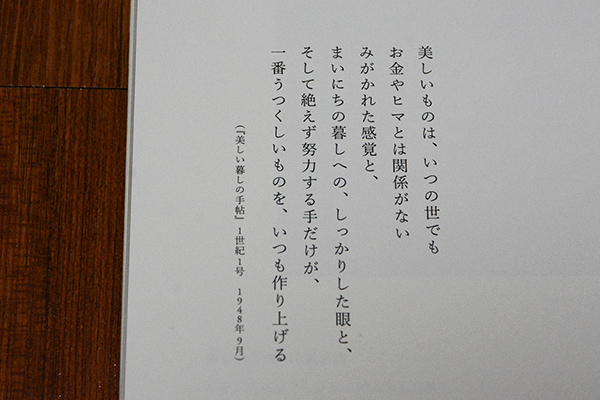 美しいものは、いつの世でも
お金やヒマとは関係がない
みがかれた感覚と、
まいにちの暮しへの、しっかりした眼と、
そして絶えず努力する手だけが、
一番うつくしいものを、いつも作り上げる
(『美しい暮しの手帖』1世紀1号 1948年9月)